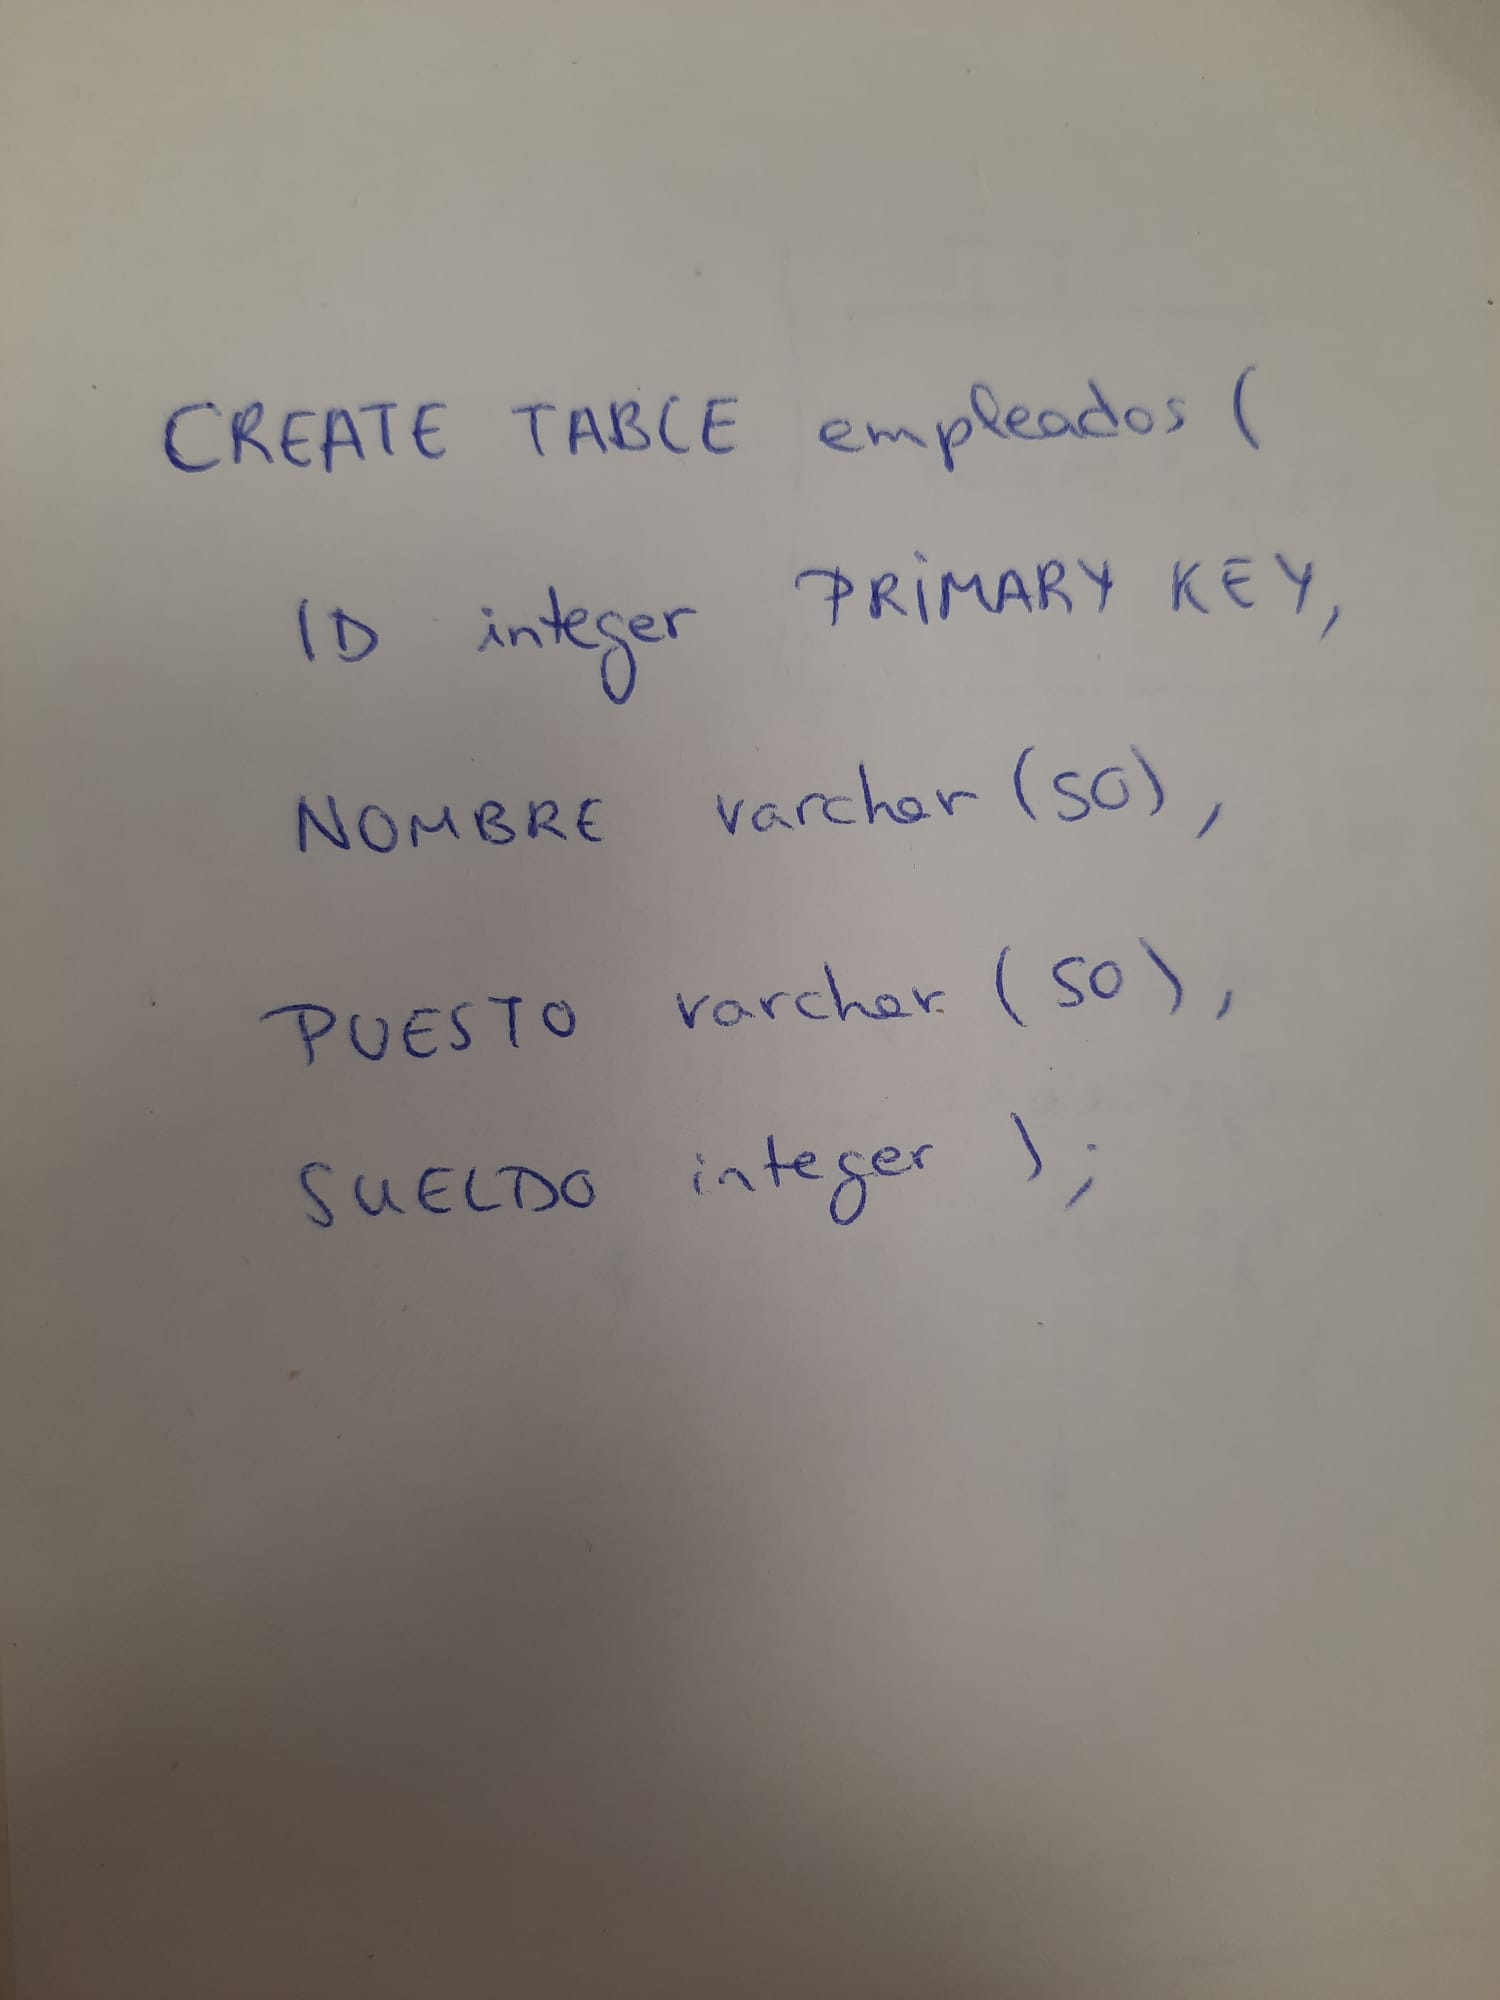 CREATE TABLE empleados (
ID integer PRIMARY KEY,
NOMBRE varchar (50),
PUESTO varchar (50),
SUELDO integer );